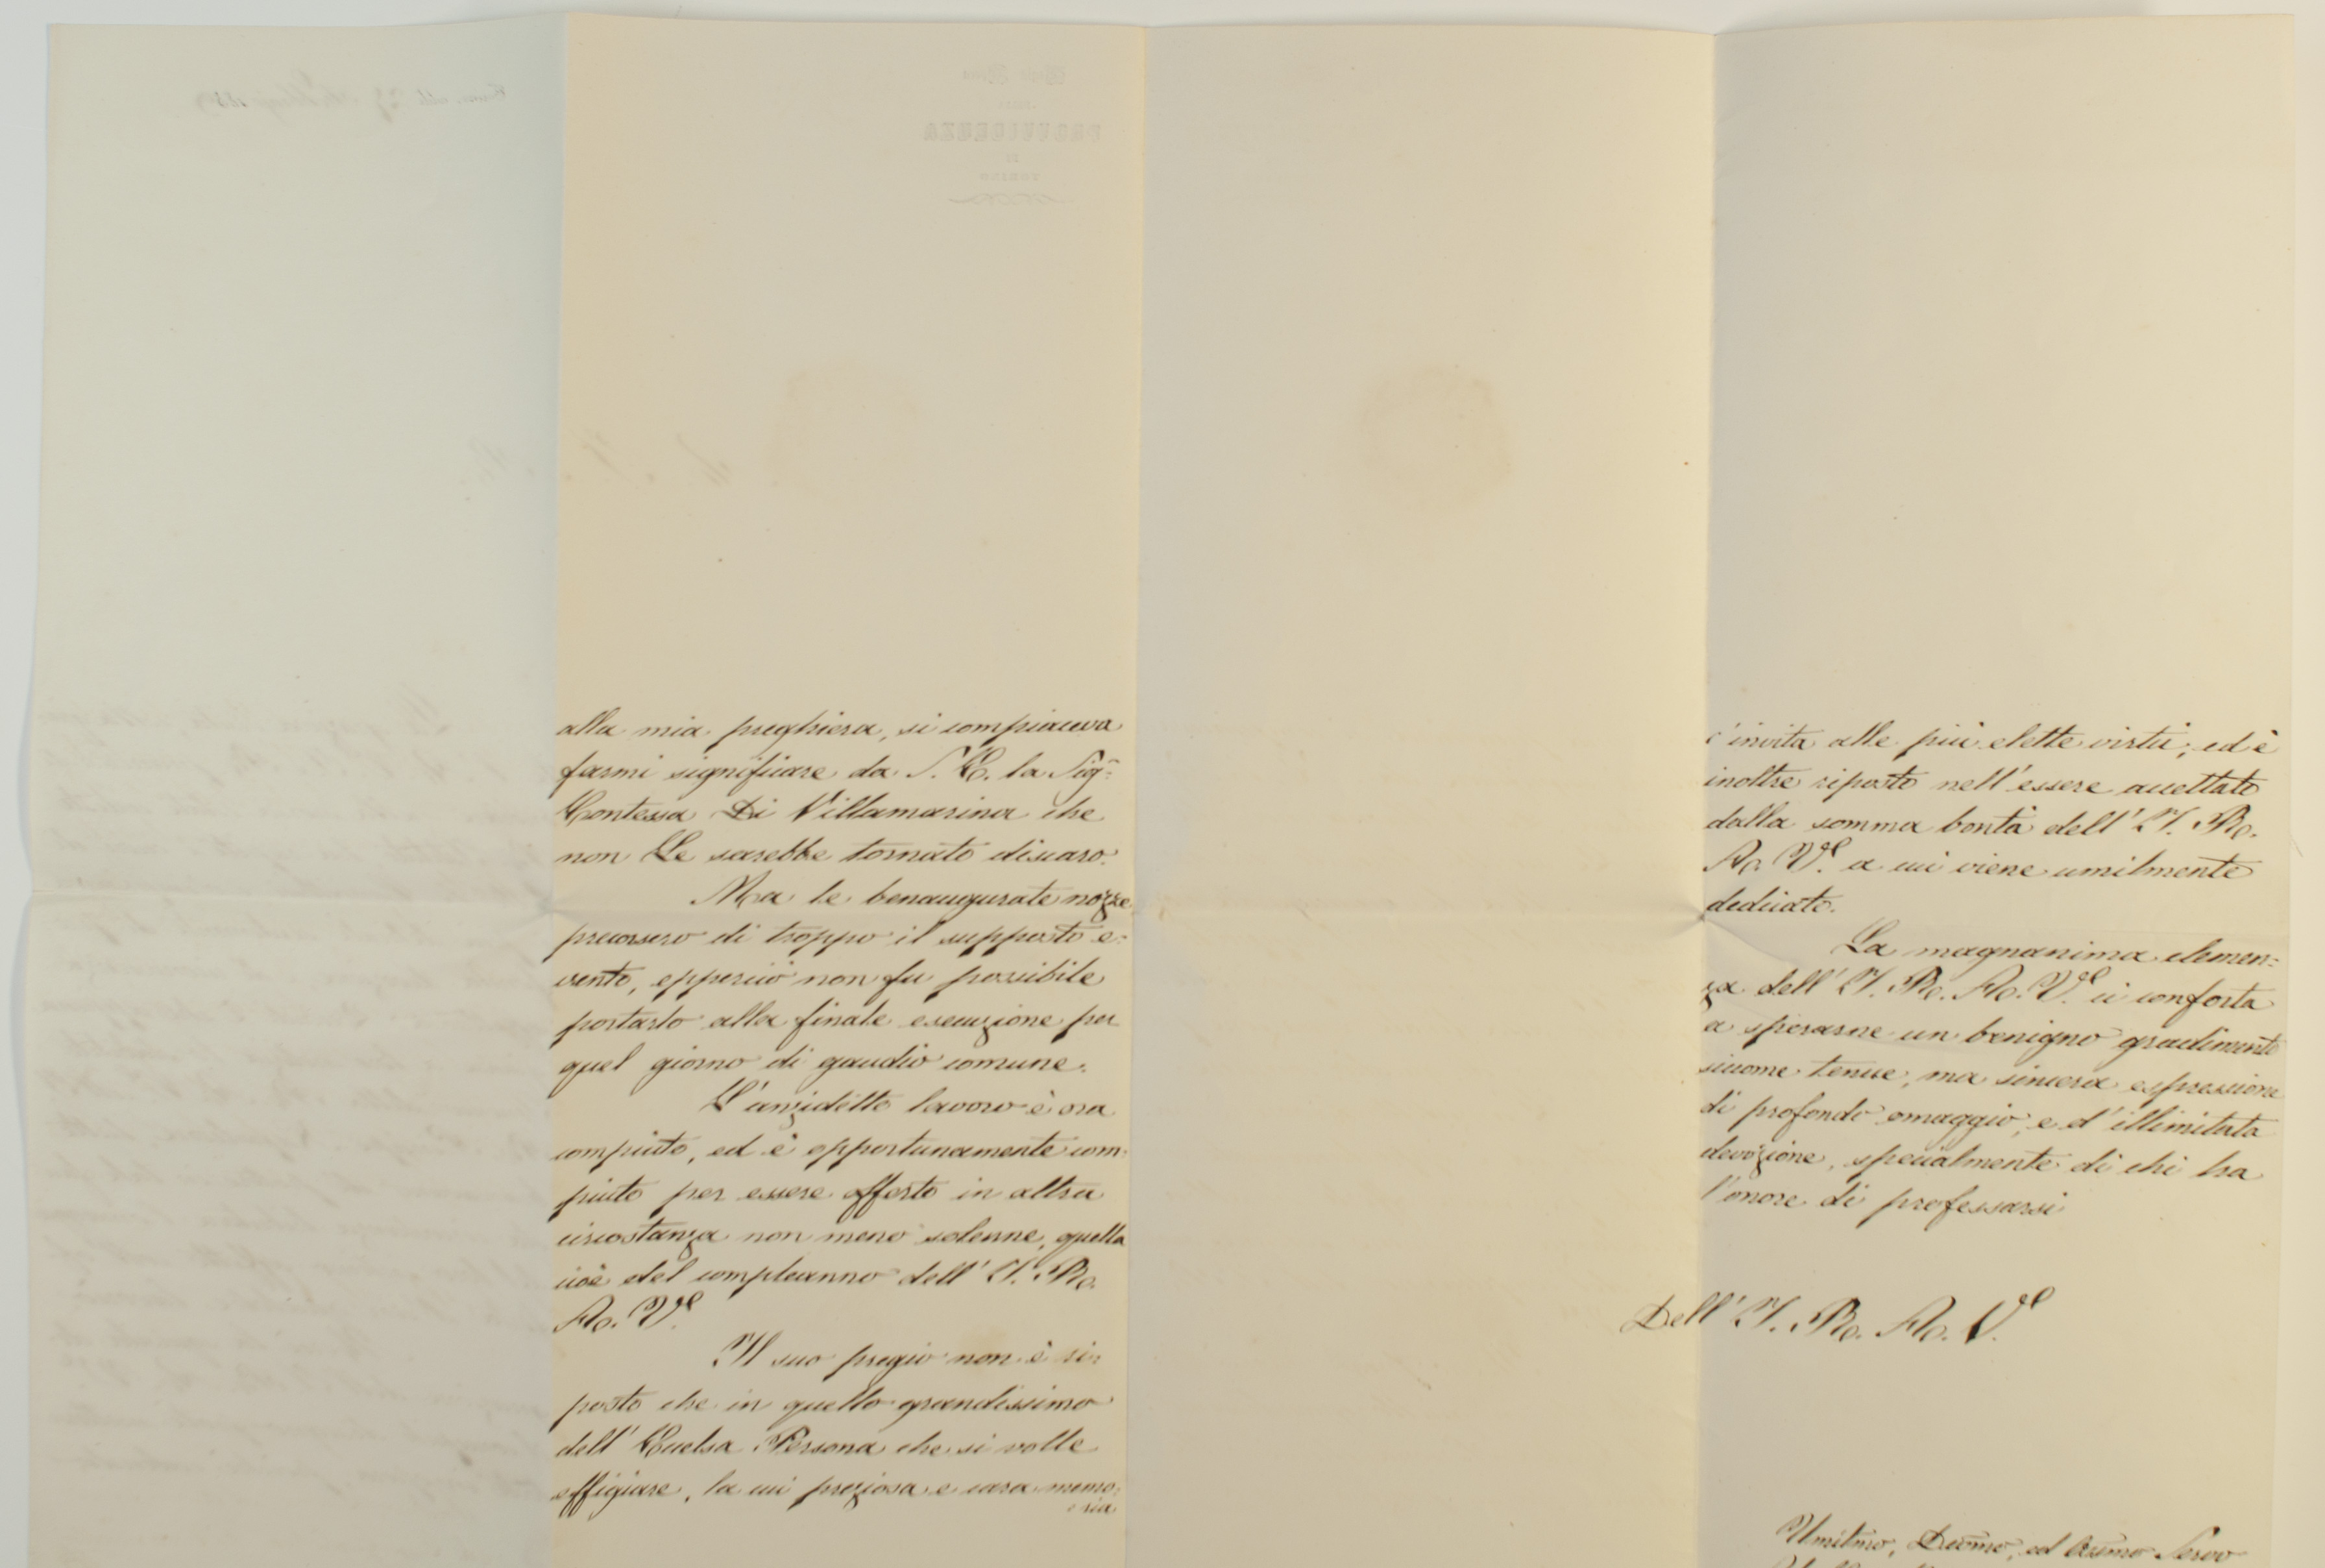 alla mia preghiera, si compiaceva
farmi significare da S. E. la Sig.ª
Contessa Di Villamarina che
non Le sarebbe tornato discaro.
Ma le benaugurate nozze
precorsero di troppo il supposto e=
vento, epperciò non fu possibile
portarlo alla finale esecuzione per
quel giorno di gaudio comune.
L'anzidetto lavoro è ora
compiuto, ed è opportunamente com=
piuto per essere offerto in altra
circostanza non meno solenne, quella
cioè del compleanno dell' A. R.
V.ª
Il suo pregio non è ri=
posto che in quello grandissimo
dell' Eccelsa Persona che si volle
effigiare, la cui preziosa e cara memo=
ria
c'invita alle più elette virtù; ed è
inoltre riposto nell'essere accettato
dalla somma bontà dell'
a cui viene umilmente
dedicato.
La magnanima clemen=
za dell' ci conforta
a sperarne un benigno gradimento
siccome tenue, ma sincera espressione
di profondo omaggio, e d'illimitata
devozione, specialmente di chi ha
l'onore di professarsi
Dell'
Umilmo, Devmo, ed Obbmo Servo
PROVVIDENZA
DI
TORINO